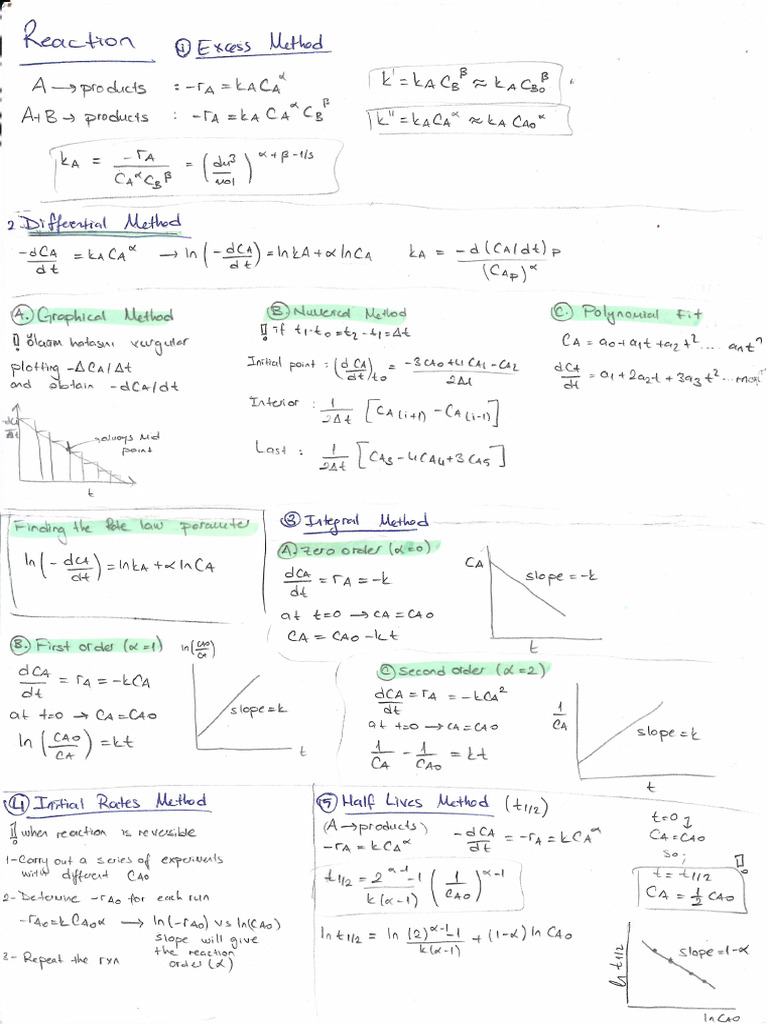 Reaction
① Excess Method
A → products : -rA = kA CA^α
k' = kA CB^β ≈ kA CB0^β
A+B → products : -rA = kA CA^α CB^β
k'' = kA CA^α ≈ kA CA0^α
kA = -rA / (CA^α CB^β) = (dm³/mol)^(α+β-1/s)
2. Differential Method
-dCA/dt = kA CA^α → ln(-dCA/dt) = ln kA + α ln CA
kA = -d(CA/dt)p / (CAp)^α
A. Graphical Method
plotting -ΔCA/Δt
and obtain -dCA/dt
-dCA/Δt
always mid
point
t
B Numerical Method
! if t1-t0 = t2-t1 = Δt
Initial point : (dCA/dt)t0 = (-3CA0+4CA1-CA2) / 2Δt
Interior : 1/2Δt [CA(i+1) - CA(i-1)]
Last : 1/2Δt [CA3 - 4CA4 + 3CA5]
C. Polynomial fit
CA = a0+a1t+a2t² .... ant^n
dCA/dt = a1+2a2t+3a3t² ...
Finding the Rate law parameter
ln(-dCA/dt) = ln kA + α ln CA
③ Integral Method
A. Zero order (α=0)
dCA/dt = rA = -k
at t=0 → CA = CA0
CA = CA0 - kt
CA
slope = -k
t
B. First order (α=1)
dCA/dt = rA = -kCA
at t=0 → CA = CA0
ln(CA0/CA) = kt
ln(CA0/CA)
slope = k
t
C Second order (α=2)
dCA/dt = rA = -kCA²
at t=0 → CA = CA0
1/CA - 1/CA0 = kt
1/CA
slope = k
t
④ Initial Rates Method
! when reaction is reversible
1- Carry out a series of experiments
with different CA0
2- Determine -rA0 for each run
-rA0 = k CA0^α → ln(-rA0) vs ln(CA0)
slope will give
the reaction
order (α)
3- Repeat the rxn
⑤ Half Lives Method (t1/2)
(A → products)
-rA = kCA^α
-dCA/dt = -rA = kCA^α
t1/2 = (2^(α-1) - 1) / k(α-1) (1/CA0)^(α-1)
ln t1/2 = ln (2)^(α-1)-1 / k(α-1) + (1-α) ln CA0
t=0 ↓
CA = CA0
so;
t = t1/2 !
CA = 1/2 CA0
ln t1/2
slope = 1-α
ln CA0